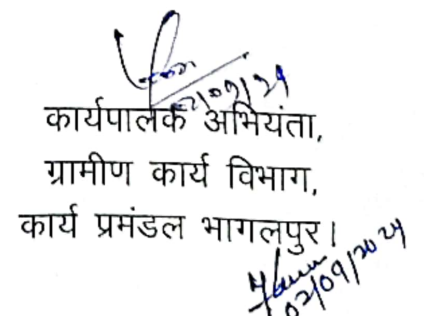 02/09/24
कार्यपालक अभियंता,
ग्रामीण कार्य विभाग,
कार्य प्रमंडल भागलपुर।
02/09/2024